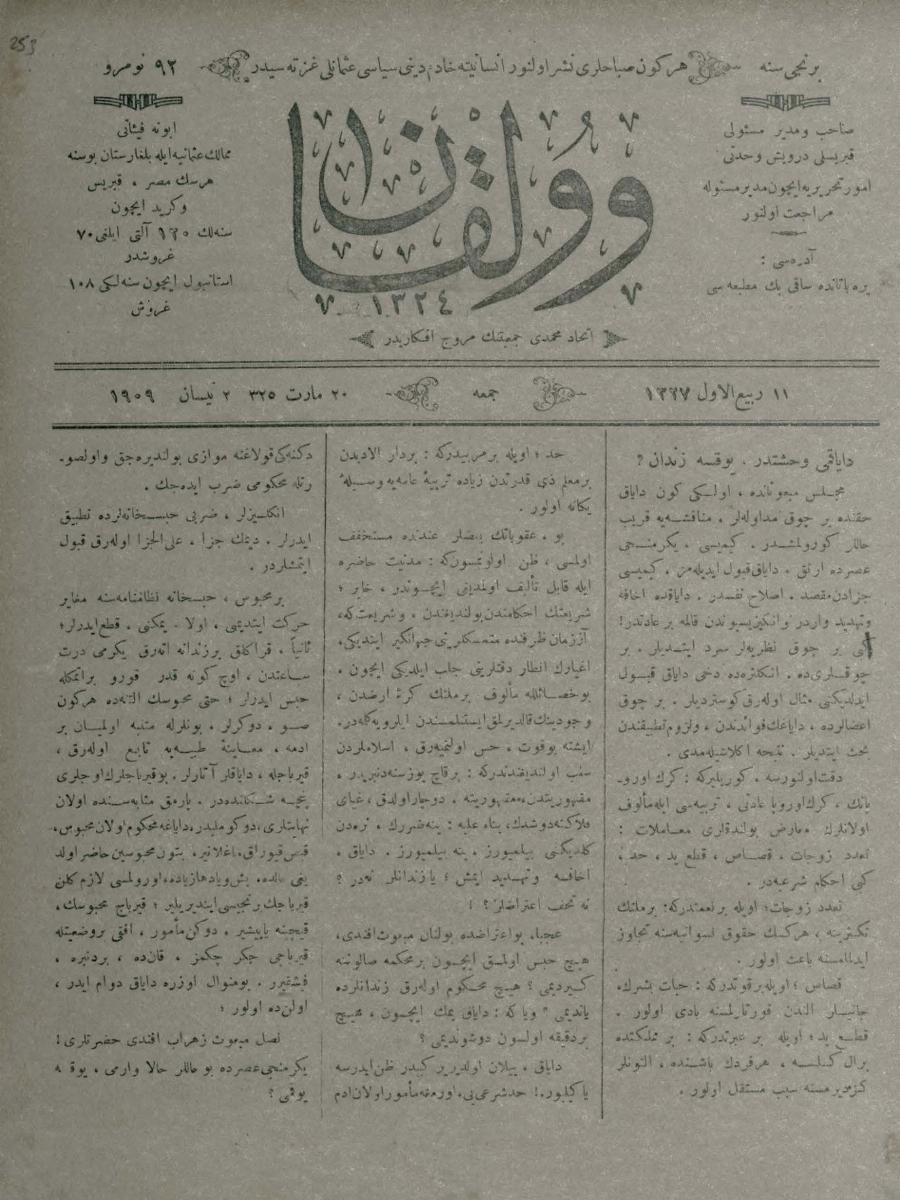 253
برنجی سنه
هر کون صباحلری نشر اولنور انسانیته خادم دینی سیاسی عثمانلی غزته سیدر
٩٢ نومرو
صاحب و مدیر مسئولی
قبریسلی درویش وحدتی
امور تحریریه ایچون مدیر مسئوله
مراجعت اولنور
آدره‌سی :
یره باتانده ساقی بك مطبعه سی
وولقان
١٣٢٤
اتحاد محمدی جمعیتنك مروج افکاریدر
ابونه فیئاتی
ممالك عثمانیه ایله بلغارستان بوسنه
هرسك مصر ، قبریس
وکرید ایچون
سنه‌لك ١٣٥ آلتی ایلغی ٧٠
غروشدر
استانبول ایچون سنه لکی ١٠٨
غروش
١١ ربیع الاول ١٣٢٧
جمعه
٢٠ مارت ٣٢٥
٢ نیسان ١٩٠٩
دایاقمی وحشتدر ، یوقسه زندان ؟
مجلس مبعوثانده ، اولکی کون دایاق
حقنده بر چوق مداوله‌لر ، مناقشه‌یه قریب
حاللر کورولمشدر . کیمیسی ، یکرمنجی
عصرده ارتق ، دایاق قبول ایدیله‌مز ، کیمیسی
جزادن مقصد ، اصلاح نفسدر . دایاقده اخافه
وتهدید واردر وانکیزیسیوندن قالمه بر عادتدر!
کبی بر چوق نظریه‌لر سرد ایتمدیلر . بر
چوقلری‌ده ، انکلتره‌ده دخی دایاق قبول
ایدلدیکنی مثال اوله‌رق کوستردیلر . بر چوق
اعضالرده ، دایاغك فوائدندن ، ولزوم تطبیقندن
بحث ایتدیلر . نتیجه اکلاشیله‌مدی .
دقت اولنورسه ، کوریلیرکه : کرك اورو-
پانك ، کرك اوروپا عادتی ، تربیه‌سی ایله‌مألوف
اولانلرك معارض بولندقلری معاملات :
تعدد زوجات ، قصاص ، قطع ید ، حد ،
کبی احکام شرعیه‌در .
تعدد زوجات ؛ اویله بر نعمتدرکه : بر ملتك
تکثرینه ، هرکسك حقوق نسوانیه‌سنه تجاوز
ایدلمامسنه باعث اولور .
قصاص ؛ اویله بر قوتدرکه : حیات بشرك ،
جانیلر الندن قورتارلسنه بادی اولور .
قطع ید ؛ اویله بر عبرتدرکه : بر مملکتده
برال کسلسه ، هرفردك باشنده ، التونلر
کزدیرمسنه سبب مستقل اولور .
حد ؛ اویله بر مربیدرکه : بردار الادبدن
برمعلم ذی قدرتدن زیاده تربیهٔ عامه‌یه وسیلهٔ
یکانه اولور .
بو ، عقوباتك بعضلر عندنده مستخفف
اولمسی ، ظن اولونمسون‌که : مدنیت حاضره
ایله قابل تألیف اولمدیغی ایچوندر ، خایر ؛
شریعتك احکامندن بولندیغندن ، وشریعت‌که،
آز زمان ظرفنده متمسکلرینی جهانکیر ایتدیکی،
اغیارك انظار دقتلرینی جلب ایلدیکی ایچون .
بوخصائلله مألوف برملتك کرهٔ ارضدن ،
وجودینك قالدیرلمق ایستنلمسندن ایلرویه‌کله‌در.
ایشته بوقوت ، حس اولنمیه‌رق ، اسلاملردن
سلب اولندیغندندرکه : برقاچ یوز سنه‌دنبریدر ،
مقهوریتدن ، مقهوریته . دوچار اولدق ، غیای
فلاکته دوشدك ، بناء علیه : ینه ضررك ، نره‌دن
کلدیکنی بیلمیورز . ینه بیلمیورز . دایاق ،
اخافه وتهدید ایمش ؛ یا زندانلر نه‌در ؟
نه تحف اعتراضلر ؟ !
عجبا ، بو اعتراضده بولنان مبعوث افندی،
هیچ حبس اولمق ایچون برمحکمه صالوننه
کیردیمی ؟ هیچ محکوم اوله‌رق زندانلرده
یاندیمی ؟ ویا که : دایاق یمك ایچون ، هیچ
بردقیقه اولسون دوشوندیمی ؟
دایاق ، ییلان اولدیریر کبیدر ظن ایدرسه
یا کیلیور.! حدشرعی‌یی ، اورمغه مأمور اولان ادم
دکنه‌کی قولاغنه موازی بولندیره‌جق و اولصو-
رتله محکومی ضرب ایده‌جك .
انکلیزلر ، ضربی حبسخانه‌لرده تطبیق
ایدرلر . دیمك جزا ، علی‌الجزا اوله‌رق قبول
ایتمشلردر .
بر محبوس ، حبسخانه نظامنامه‌سنه مغایر
حرکت ایتدیمی ، اولا یمکنی ، قطع ایدرلر ؛
ثانیاً ، قراکلق برزندانه اته‌رق یکرمی درت
ساعتدن ، اوچ کونه قدر قورو براتمکله
حبس ایدرلر ؛ حتی محبوسك التنه‌ده هرکون
صو ، دوکرلر . بونلرله متنبه اولمیان بر
ادمه ، معاینهٔ طبیه‌یه تابع اوله‌رق ،
قیرباجله ، دایاقلر آتارلر . بوقیرباجلرك اوجلری
پنجه شکلنده‌در . پارمق مثابه‌سنده اولان
نهایتلری ، دوکوملیدر ، دایاغه محکوم اولان محبوس،
قیجنه یاپیشیر . دوکن‌مأمور ، افقی بروضعیتله
قیرباجی چکر چکمز ، قان‌ده ، بردنبره ،
فیشقیرر . بومنوال اوزره دایاق دوام ایدر ،
اولن‌ده اولور ؛
نصل مبعوث زهراب افندی حضرتلری !
یکرمنجی عصرده بو حاللر حالا وارمی ، یوقسه
یوقمی ؟